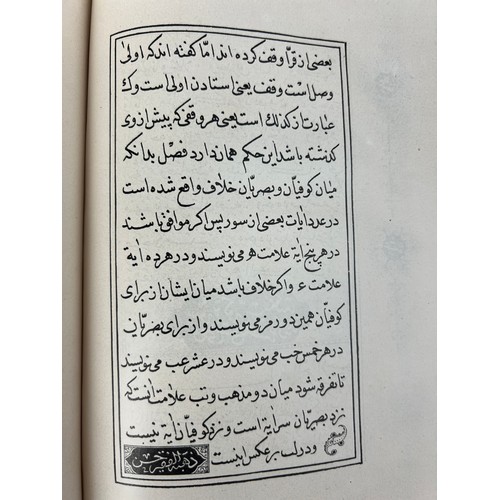 بعضی از قرّا وقف کرده اند امّا کفته اند که اولی
وصل است وقف یعنی استادن اولی است وک
عبارتاز کذلك است یعنی هر وقفی که پیش از وی
کذشته باشد این حکم همان دارد فصل بدانکه
میان کوفیان و بصریان خلاف واقع شده است
در عدد ایات بعضی از سور پس اکر موافق باشند
در هر پنج ایة علامت هو می نویسند و در هر ده ایة
علامت ء و اکر خلاف باشد میان ایشان از برای
کوفیان همین دو رمز می نویسند و از برای بصریان
در هر خمس خب می نویسند و در عشر عب می نویسند
تا تفرقه شود میان دو مذهب و تب علامت انست که
نزد بصریان سر ایة است و نزد کوفیان ایة نیست
و در لب بر عکس اینست ذهبه الفقیر حسن